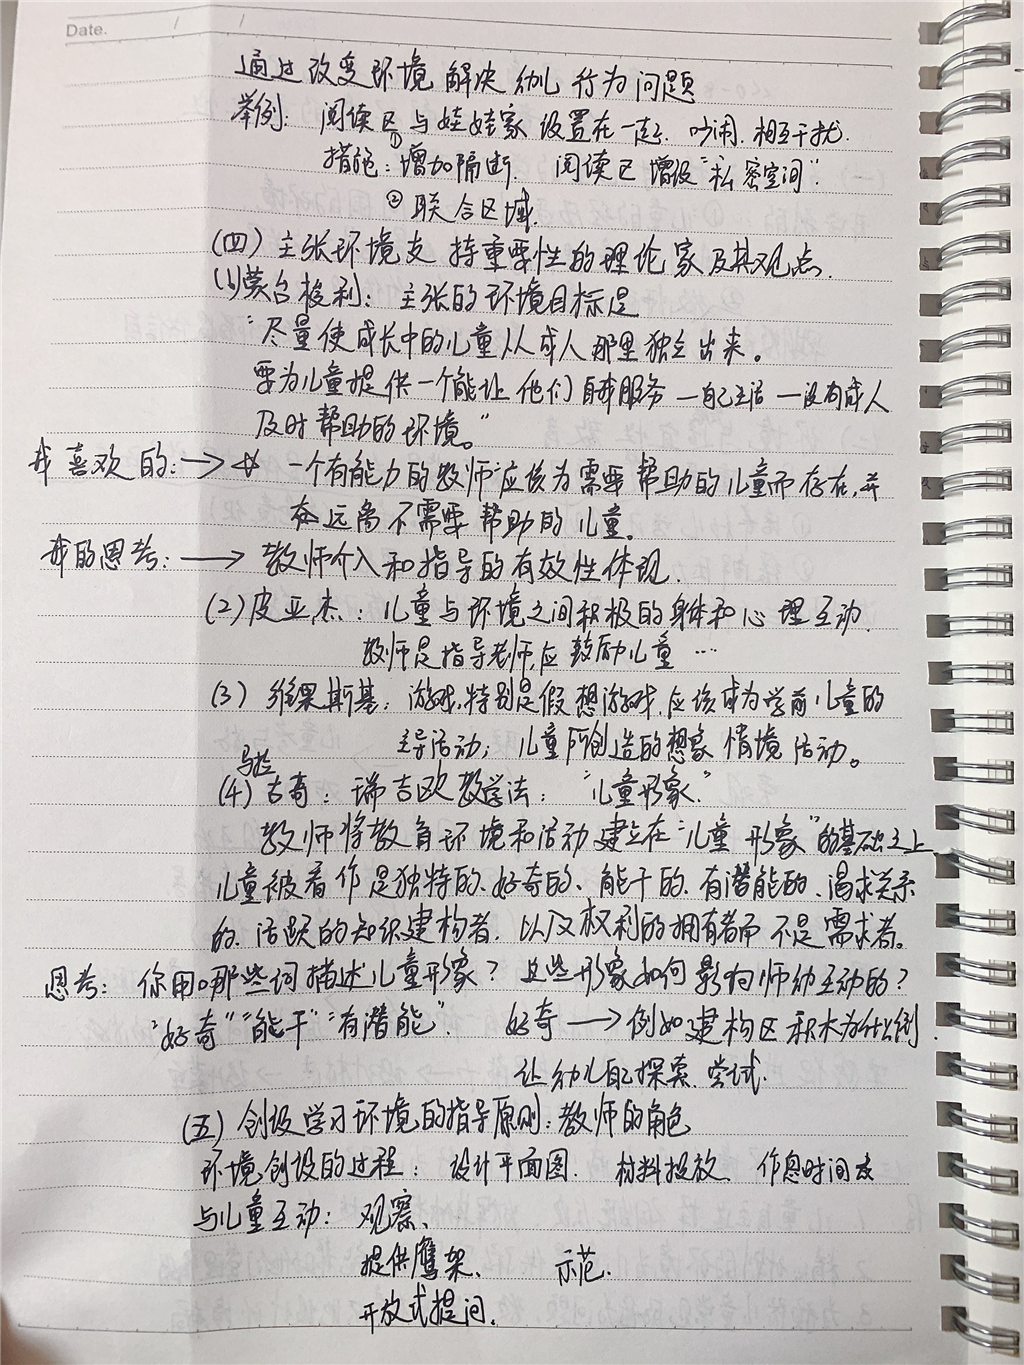 Date.    /    /
通过改变环境解决幼儿行为问题
举例：阅读区与娃娃家设置在一起，吵闹.相互干扰.
措施：①增加隔断. 阅读区增设“私密空间”.
②联合区域.
(四)主张环境支持重要性的理论家及其观点.
(1)蒙台梭利：主张的环境目标是
“尽量使成长中的儿童从成人那里独立出来。
要为儿童提供一个能让他们自我服务—自己生活—没有成人
及时帮助的环境。”
我喜欢的：→ 一个有能力的教师“应该为需要帮助的儿童而存在,并
远离不需要帮助的儿童。
我的思考：→ 教师介入和指导的有效性体现.
(2)皮亚杰：儿童与环境之间积极的身体和心理互动.
教师是指导老师,应鼓励儿童…
(3)维果斯基：游戏,特别是假想游戏.应该成为学前儿童的
主导活动；儿童所创造的想象情境活动。
马拉
(4)古奇：瑞吉欧教学法：“儿童形象.”
教师将教育环境和活动建立在“儿童形象”的基础之上
儿童被看作是独特的、好奇的、能干的、有潜能的、渴求关系
的、活跃的知识建构者，以及权利的拥有者而不是需求者。
思考：你用哪些词描述儿童形象？这些形象如何影响师幼互动的？
“好奇”“能干”“有潜能”. 好奇→例如建构区积木为什么倒.
让幼儿自己探索.尝试.
(五)创设学习环境的指导原则：教师的角色
环境创设的过程：设计平面图. 材料投放. 作息时间表
与儿童互动：观察、
提供鹰架、 示范.
开放式提问.